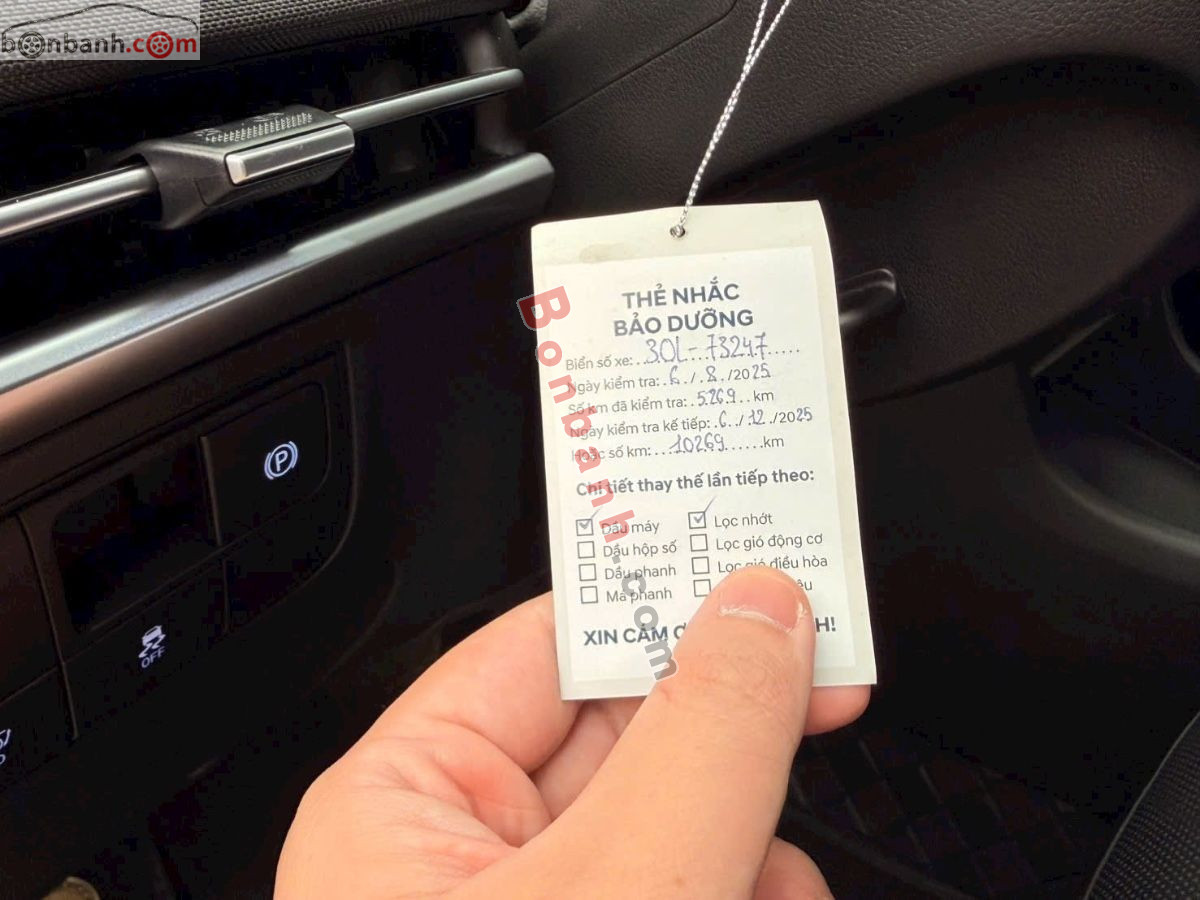 bonbanh.com
THẺ NHẮC
BẢO DƯỠNG
Biển số xe: 30L-73247
Ngày kiểm tra: 6/8/2025
Số km đã kiểm tra: 5269 km
Ngày kiểm tra kế tiếp: 6/12/2025
Hoặc số km: 10269 km
Chi tiết thay thế lần tiếp theo:
Dầu máy Lọc nhớt
Dầu hộp số Lọc gió động cơ
Dầu phanh Lọc gió điều hòa
Má phanh
XIN CẢM
Bonbanh.com
P
OFF